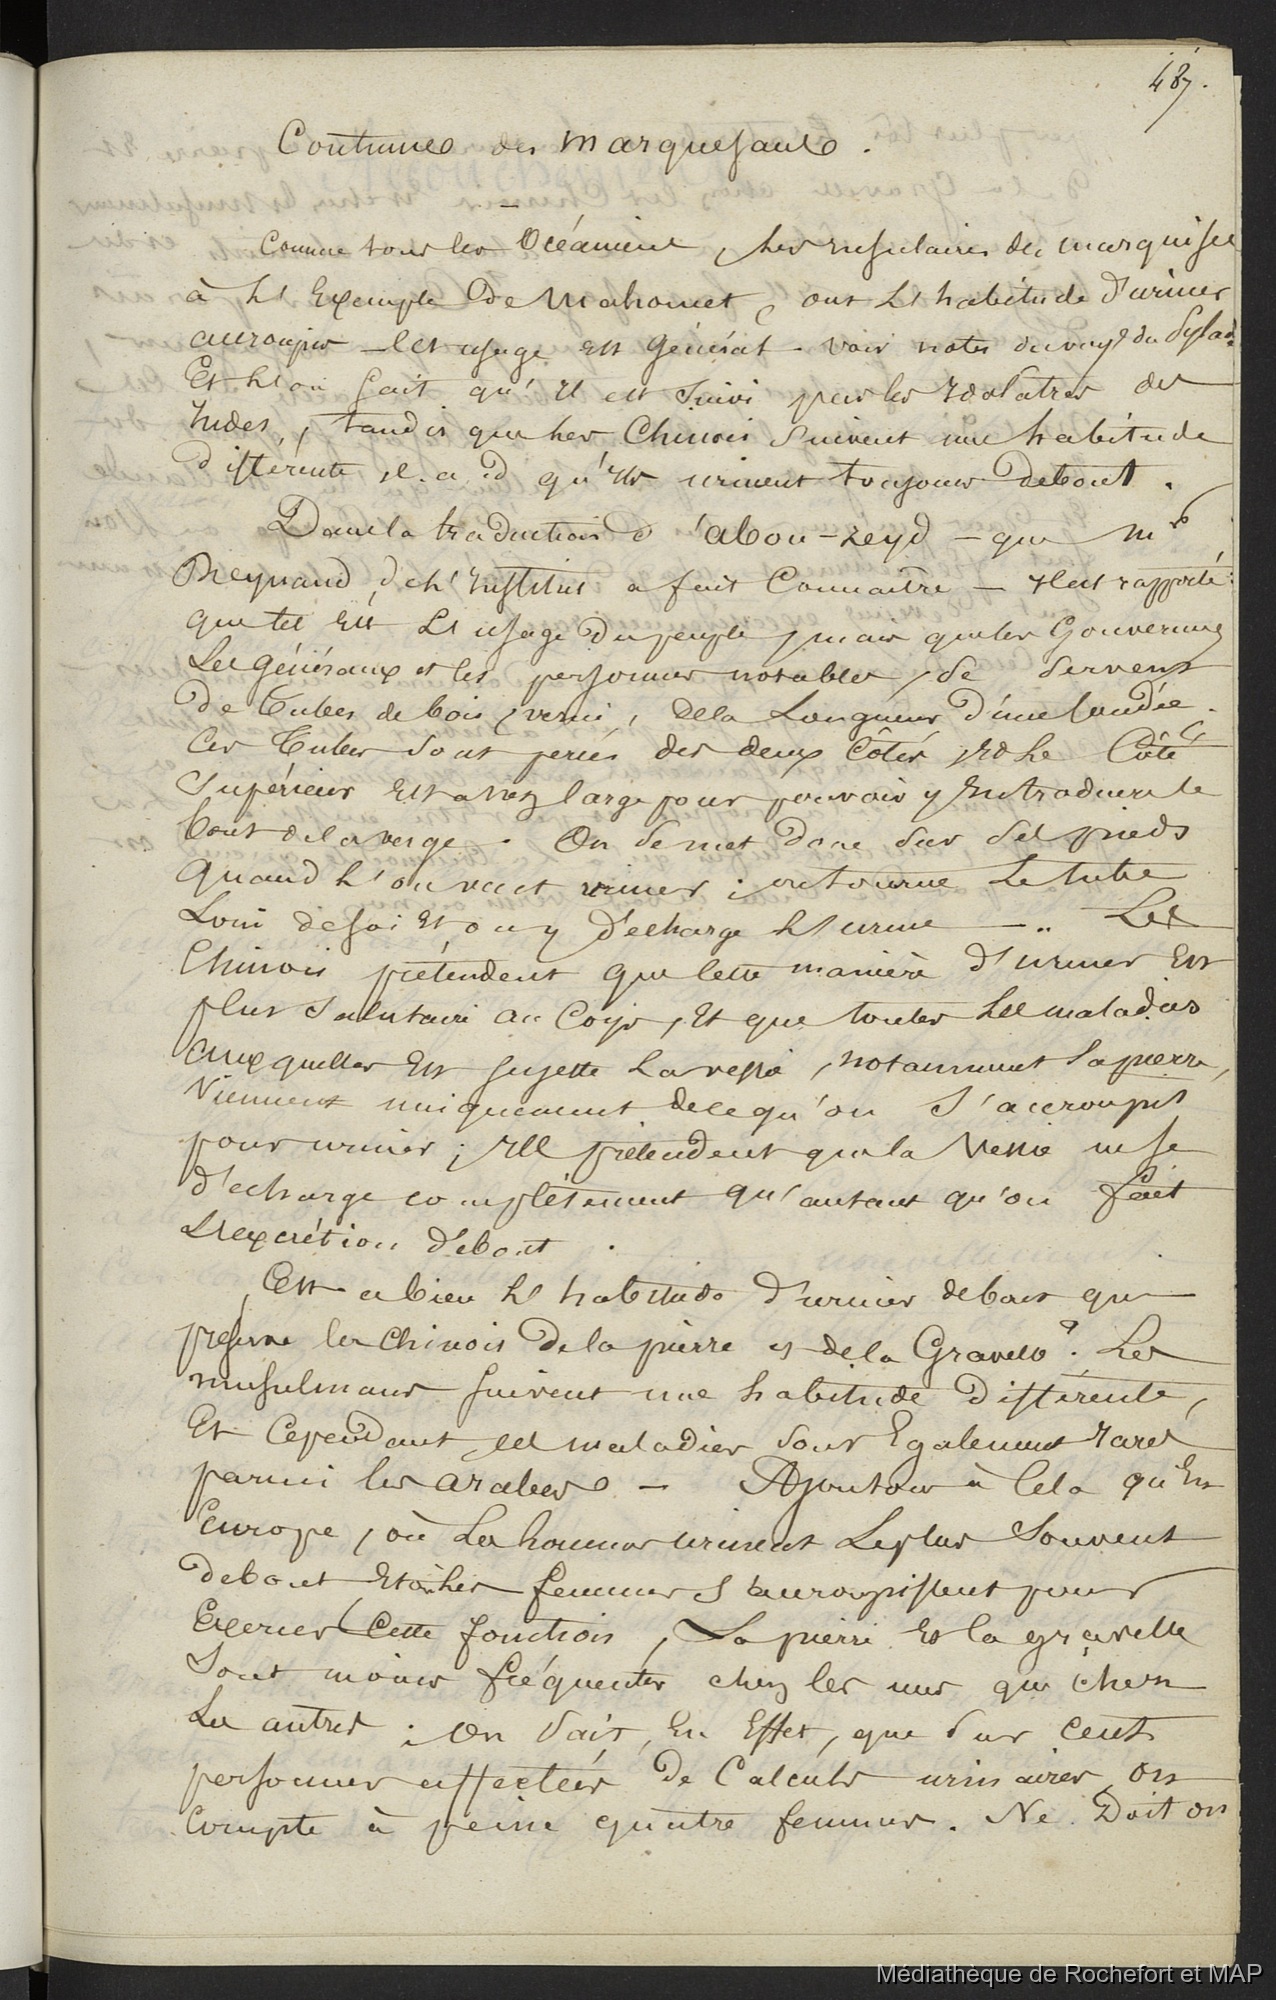 487.
Coutumes des marquesans.
Comme tous les Océaniens, les insulaires des marquises
à l'exemple de Mahomet, ont l'habitude d'uriner
accroupis – cet usage est général. voir notes du voy.
Et l'on sait qu'il est suivi par les Idolatres des
Indes, tandis que les Chinois suivent une habitude
différente c. a. d qu'ils urinent toujours debout.
Dans la traduction d'abou-zeyd – que mr
Reynaud, de l'institut a fait Connaître – il est rapporté
que tel est l'usage du peuple, mais que les Gouverneurs
les généraux et les personnes notables, se servent
de tubes de bois, verni, de la longueur d'une coudée.
Ces tubes sont percés des deux côtés, et le Côté
supérieur est assez large pour pouvoir y introduire le
bout de la verge. On se met donc sur ses pieds
quand l'on veut uriner; on tourne le tube
loin de soi et on y décharge l'urine – .. Les
Chinois prétendent que cette manière d'uriner est
plus salutaire au Corps, et que toutes les maladies
auxquelles est sujette la vessie, notamment la pierre,
viennent uniquement de ce qu'on s'accroupit
pour uriner; ils prétendent que la vessie ne se
d'echarge complètement qu'autant qu'on fait
l'excrétion debout.
Est-ce bien l'habitude d'uriner debout qui
préserve les chinois de la pierre et de la Gravelle? Les
musulmans suivent une habitude différente,
Et Cependant, ces maladies sont Egalement rares
parmi les arabes – Ajoutons à Cela qu'en
Europe, où les hommes urinent le plus souvent
debout et où les femmes s'accroupissent pour
Exercer Cette fonction, la pierre et la gravelle
sont moins fréquentes chez les unes que chez
les autres; on sait, En Effet, que sur cent
personnes affectées de Calculs urinaires on
compte à peine quatre femmes. Ne Doit on
Médiathèque de Rochefort et MAP